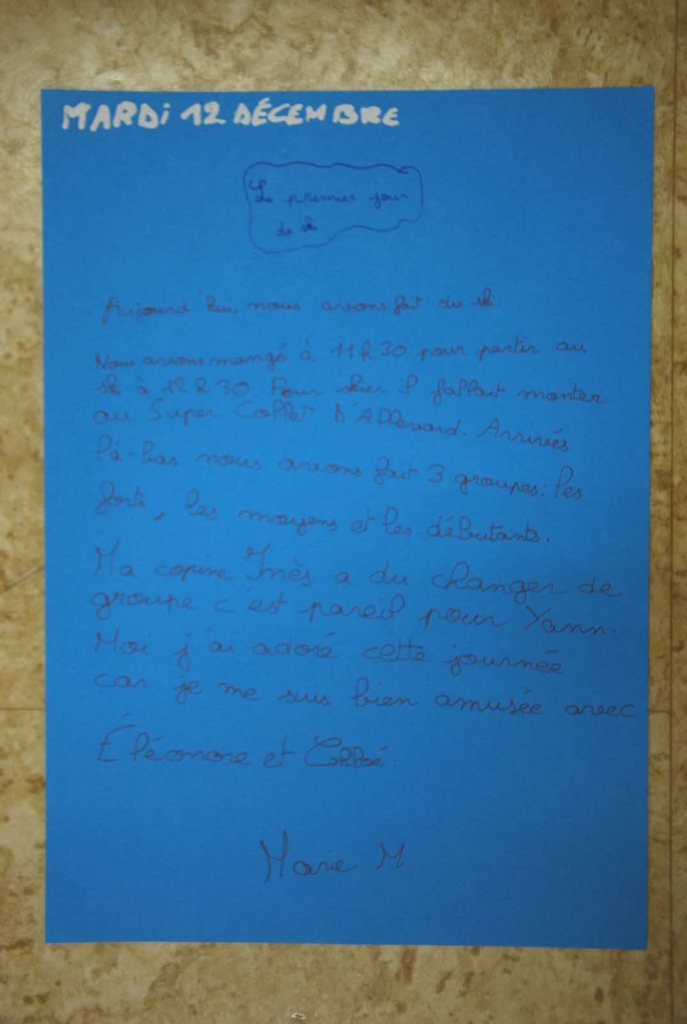 MARDI 12 DÉCEMBRE
Le premier jour
de ski
Aujourd'hui, nous avons fait du ski.
Nous avons mangé à 11h30 pour partir au
ski à 12h30. Pour skier il fallait monter
au Super Collet D'Allevard. Arrivés
là-bas nous avons fait 3 groupes: les
forts, les moyens et les débutants.
Ma copine Inès a du changer de
groupe c'est pareil pour Yann.
Moi j'ai adoré cette journée
car je me suis bien amusée avec
Éléonore et Chloé.
Marie M